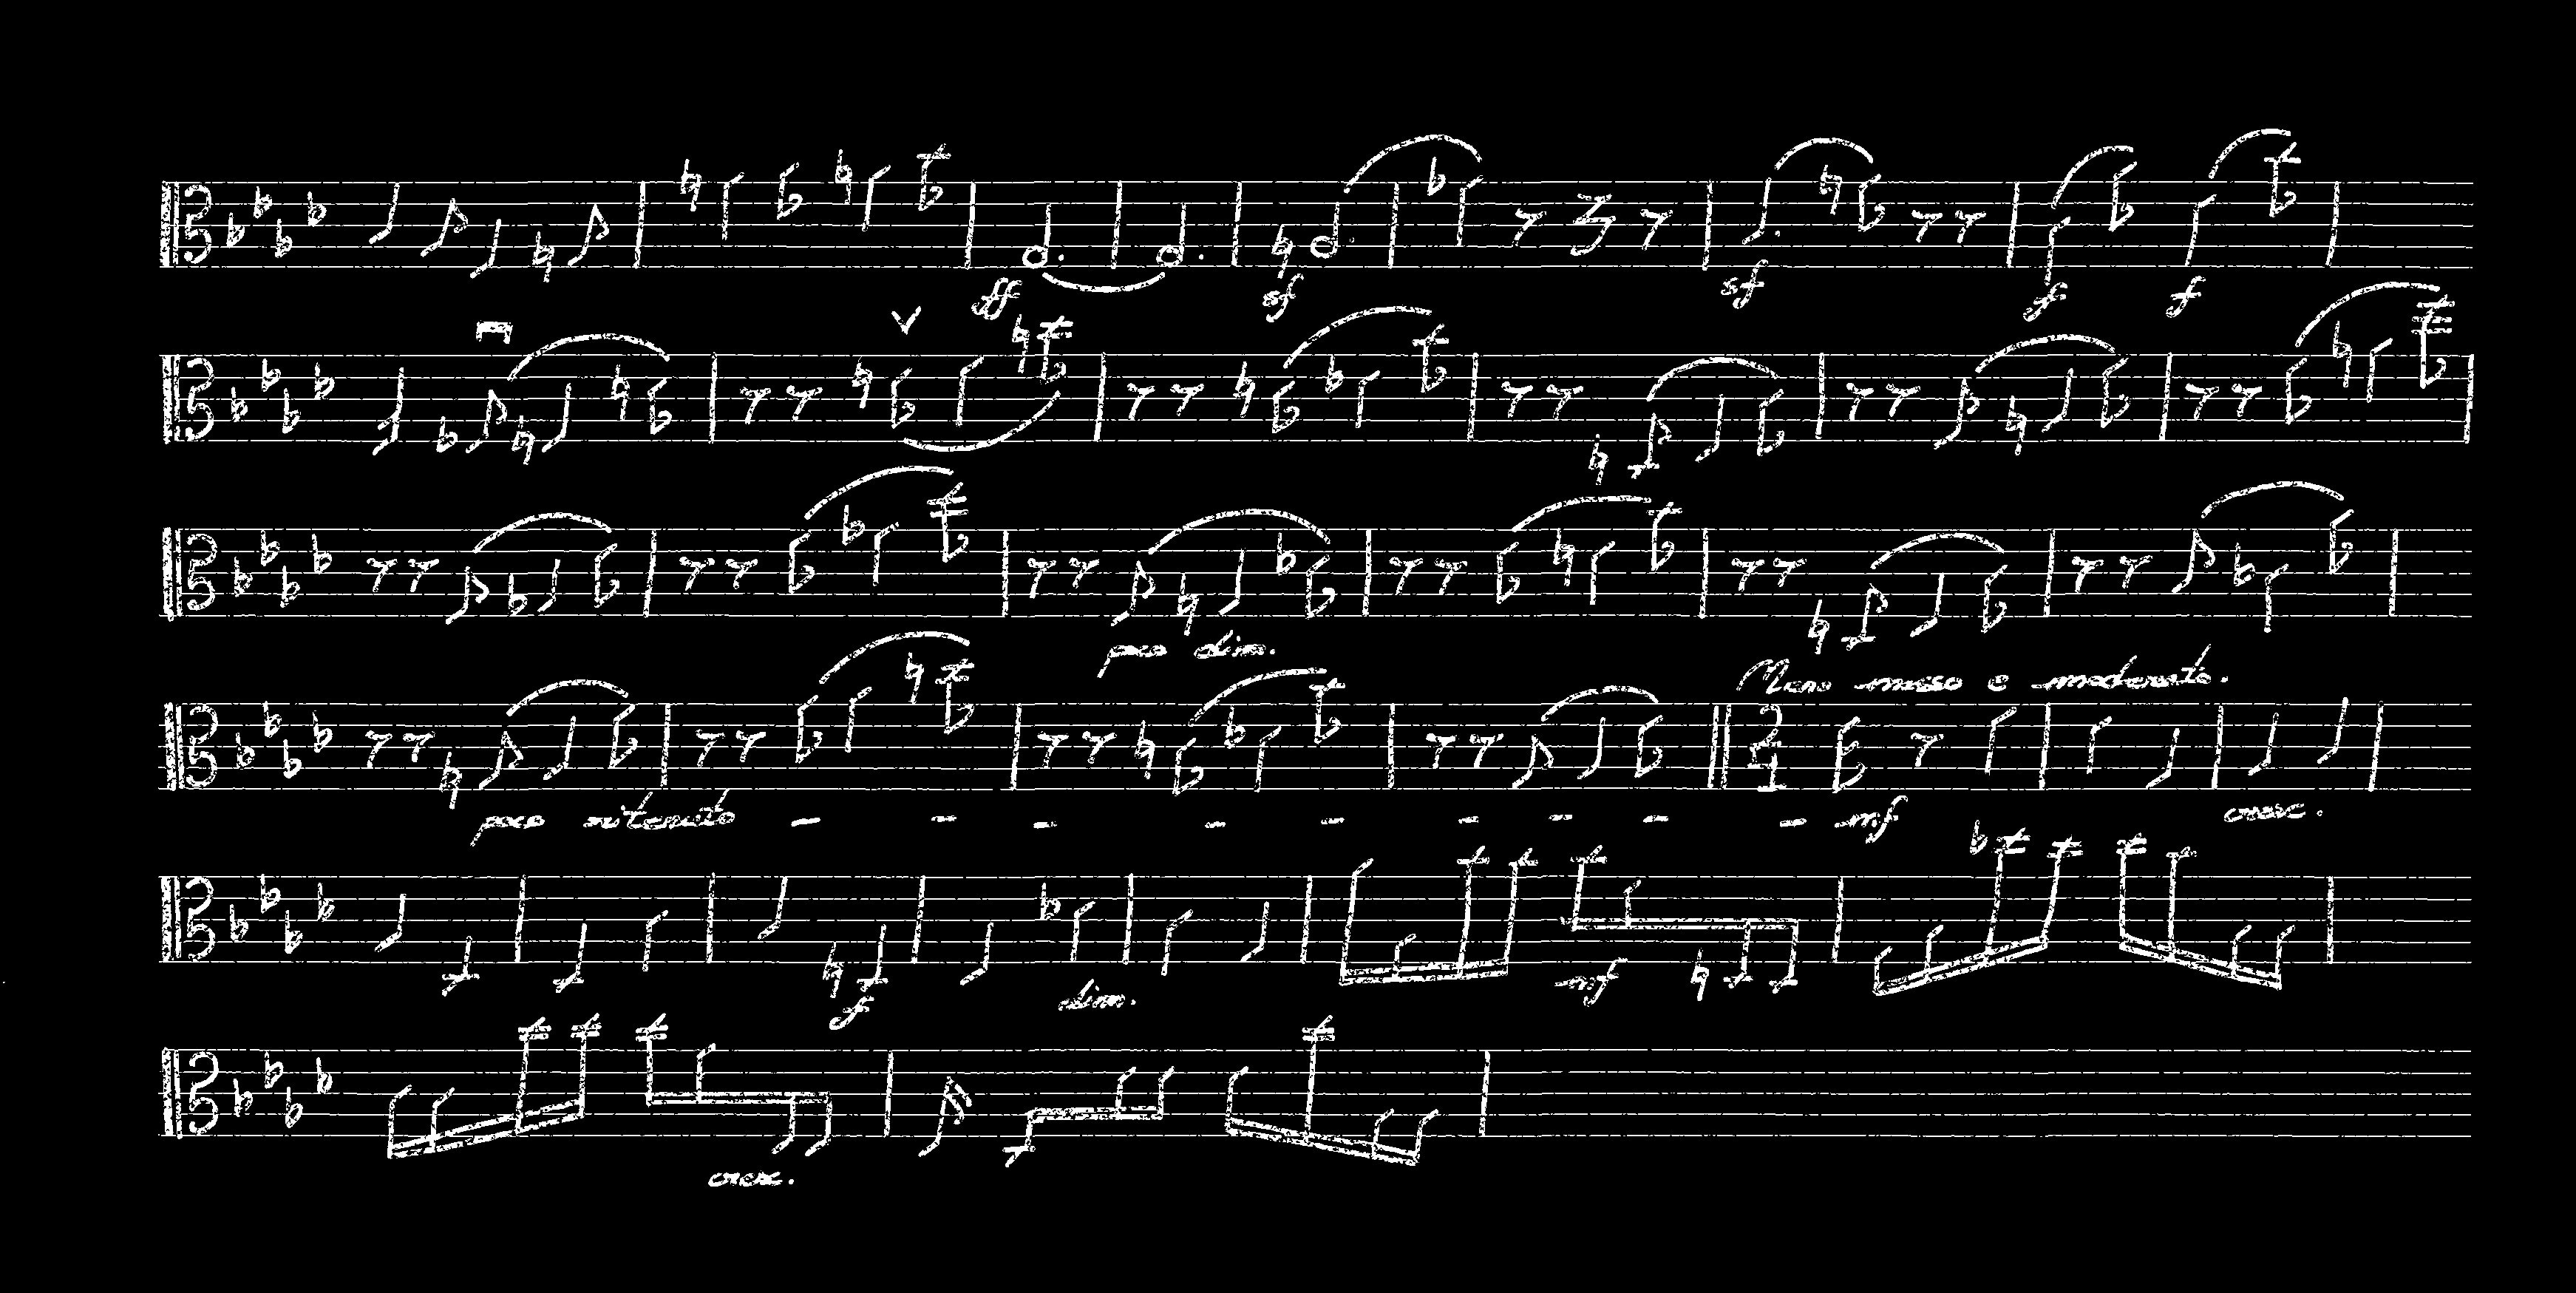 ff sf sf f f
poco dim.
Meno mosso e moderato.
2 4
poco ritenuto - - - - - - - - - mf cresc.
f dim. mf
cresc.